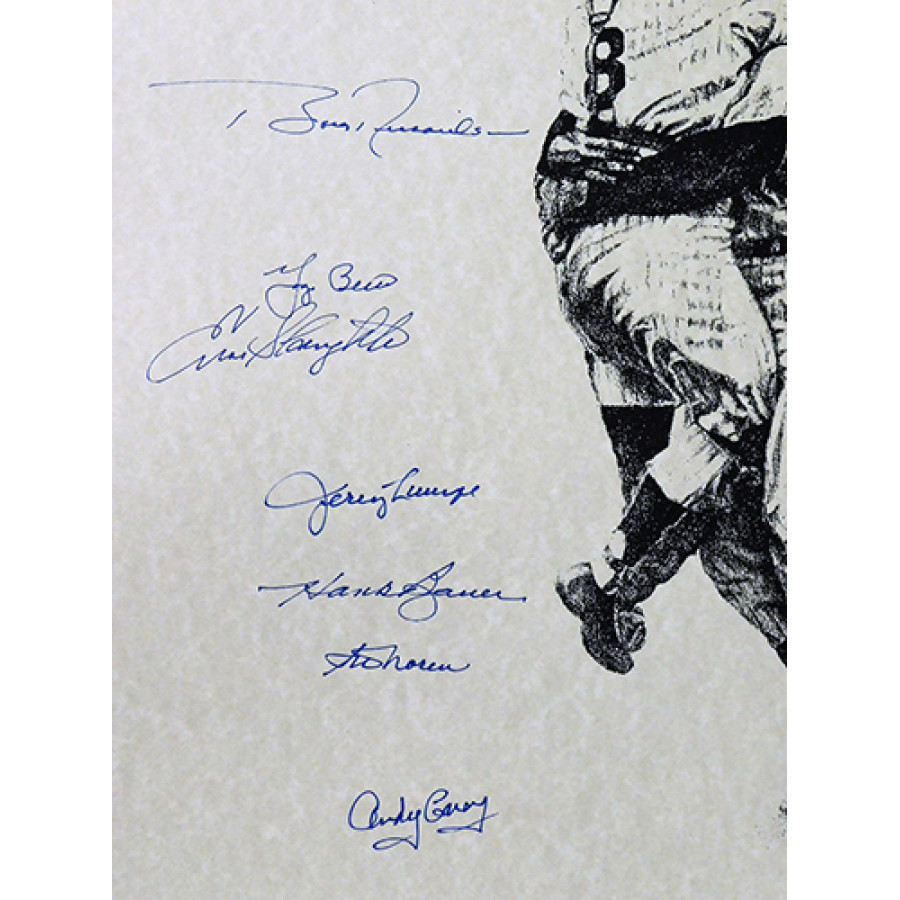 8
Bobby Richardson
Yogi Berra
Enos Slaughter
Jerry Lumpe
Hank Bauer
Irv Noren
Andy Carey